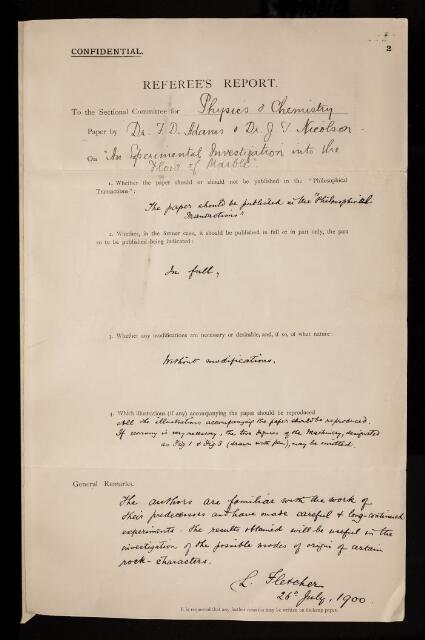 2
CONFIDENTIAL.
REFEREE'S REPORT.
To the Sectional Committee for Physics & Chemistry
Paper by Dr. F D. Adams & Dr. J. T Nicolson
On "An Experimental Investigation into the
Flow of Marble".
1. Whether the paper should or should not be published in the "Philosophical
Transactions":
The paper should be published in the "Philosophical
Transactions"
2. Whether, in the former case, it should be published in full or in part only, the part
so to be published being indicated:
In full,
3. Whether any modifications are necessary or desirable, and, if so, of what nature:
Without modifications.
4. Which illustrations (if any) accompanying the paper should be reproduced
All the illustrations accompanying the paper should be reproduced.
If economy is very necessary, the two figures of the Machinery, designated
as Fig 1 & Fig 3 (drawn with pen), may be omitted.
General Remarks.
The authors are familiar with the work of
their predecessors and have made careful & long-continued
experiments. The results obtained will be useful in the
investigation of the possible modes of origin of certain
rock-characters.
L. Fletcher
26th July, 1900.
It is requested that any further remarks may be written on foolscap paper.